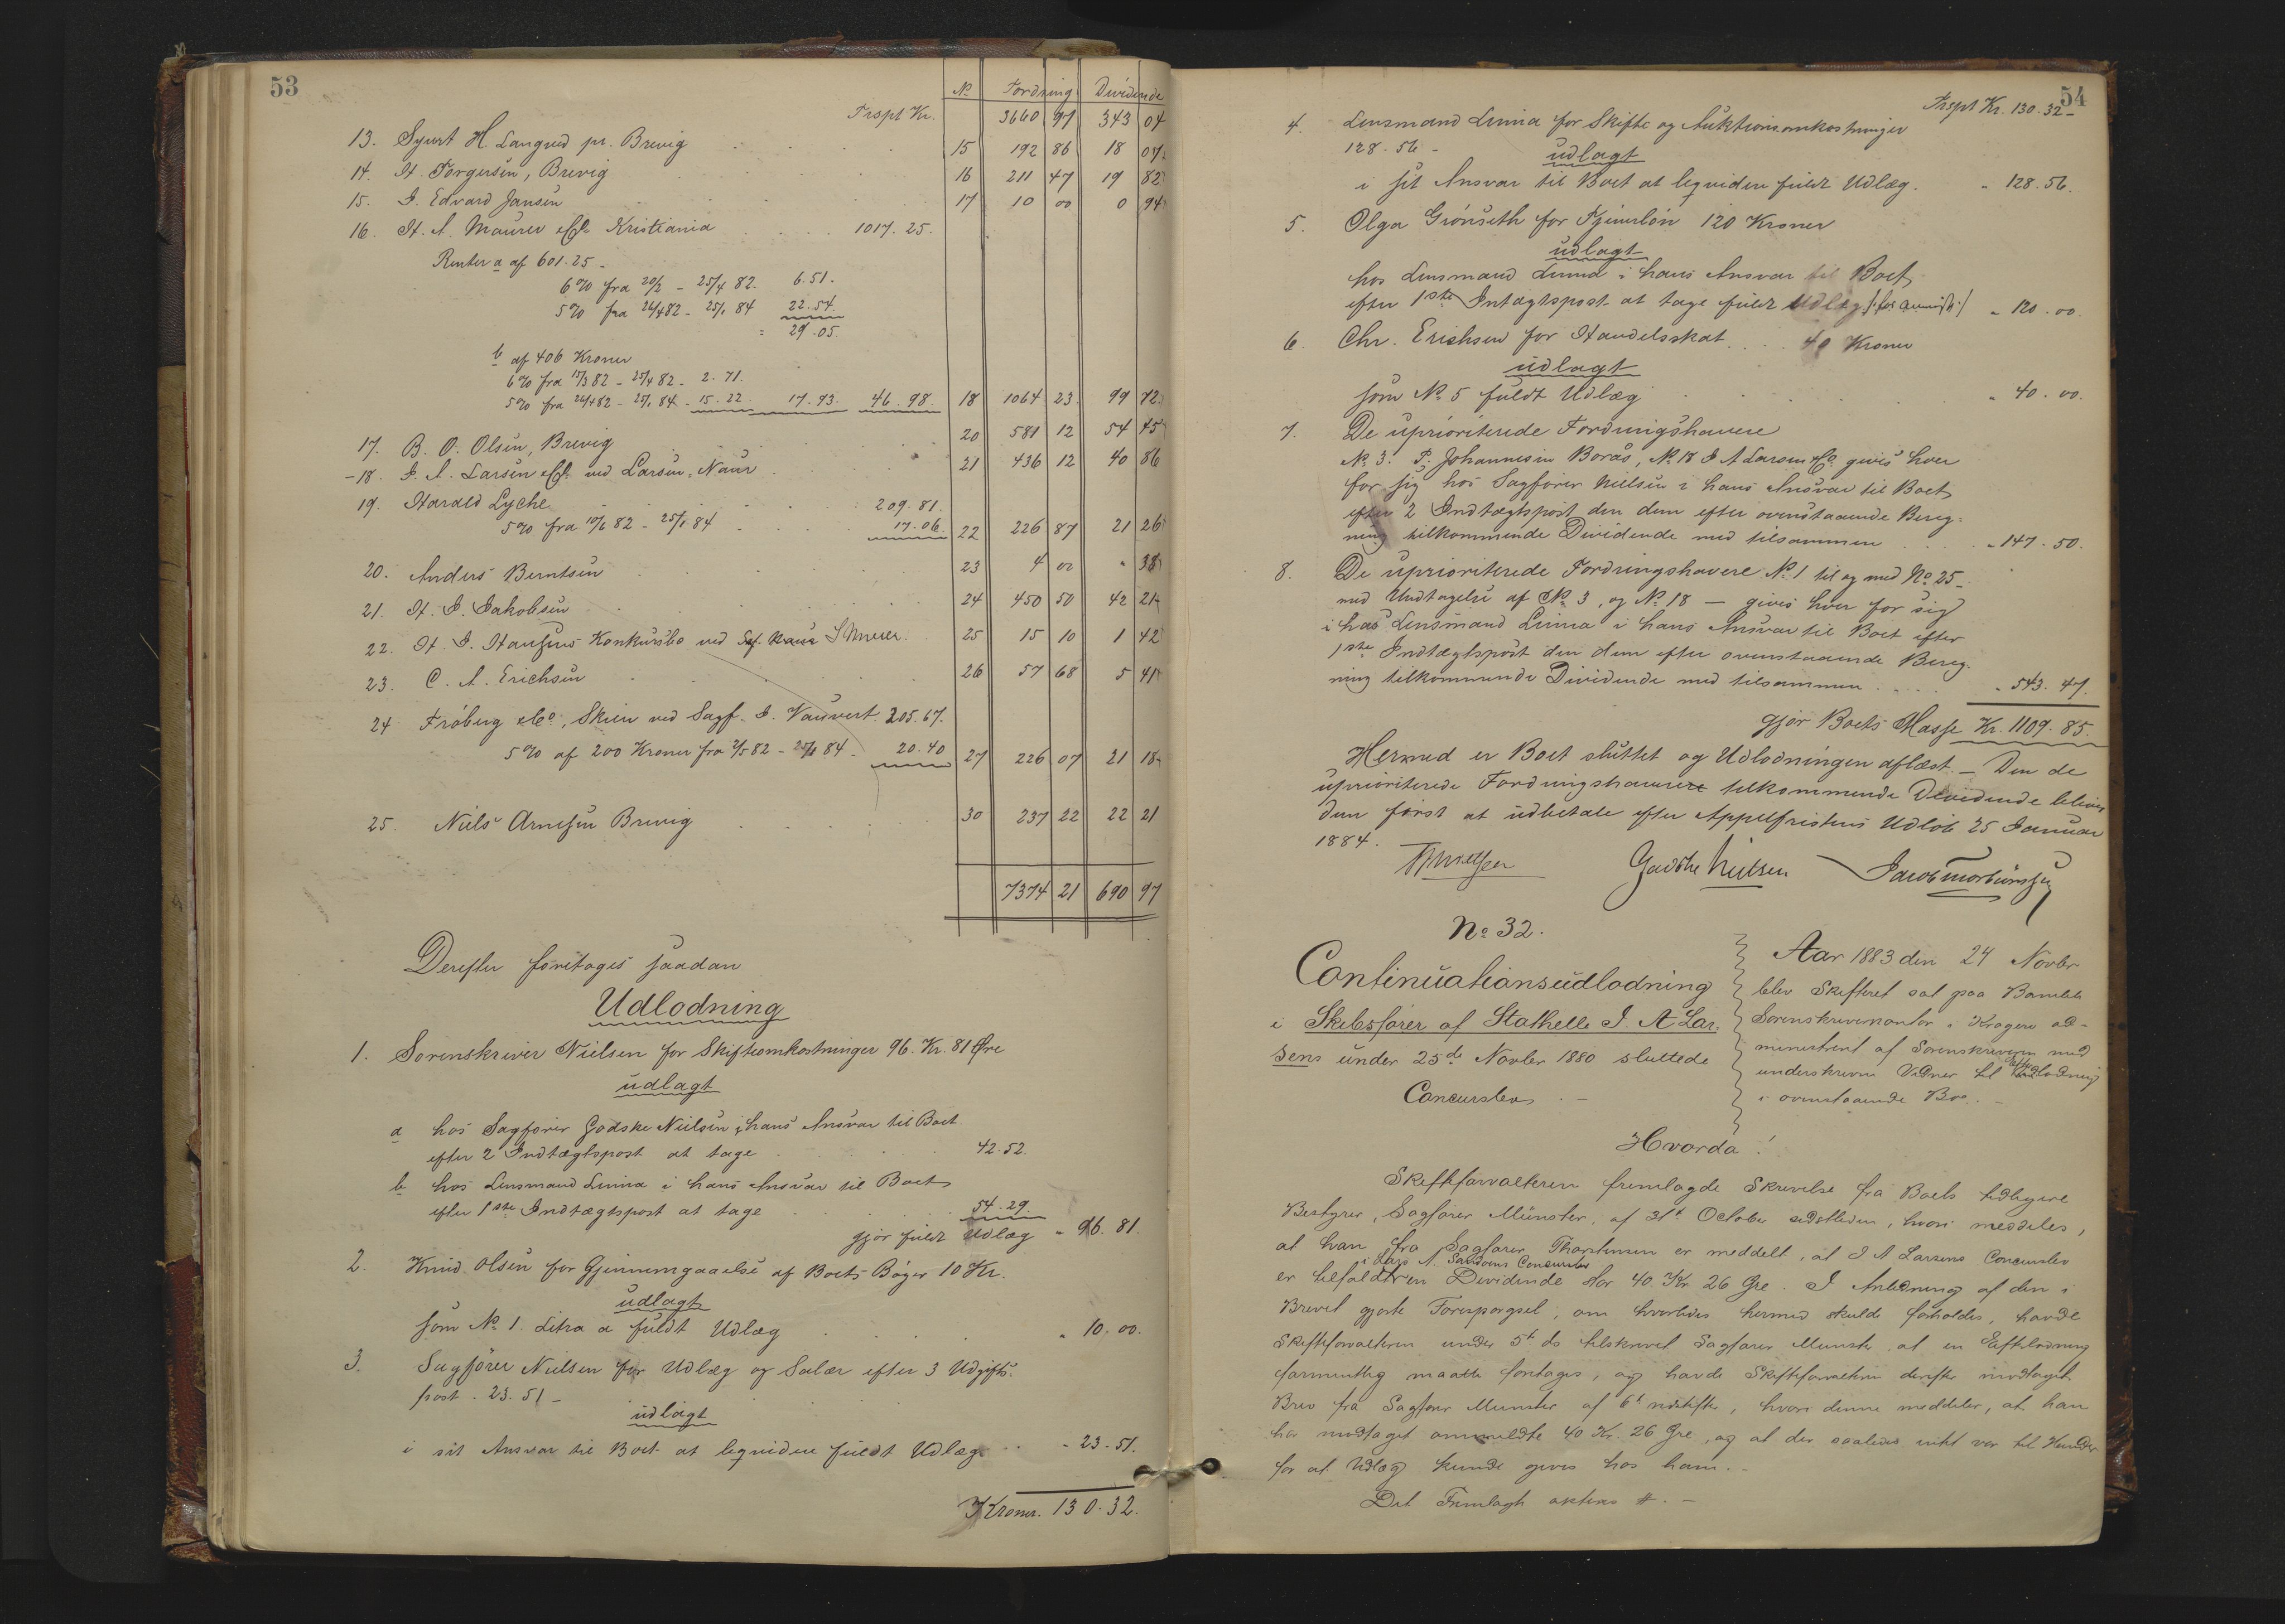 53
No Fordring Dividende
Trspt Kr. 3660 97 343 04
13. Syvert H. Langved pr. Brevig 15 192 86 18 07
14. H. Torgersen, Brevig 16 211 47 19 82
15. J. Edvard Jansen 17 10 00 0 94
16. H. A. Maurer & Co Kristiania 1017. 25.
Renter a af 601.25 -
6% fra 20/2 - 25/4 82. 6.51.
5% fra 26/4 82 - 25/1 84 22.54.
= 29.05.
b af 406 Kroner
6% fra 15/3 82 - 25/4 82 - 2. 71.
5% fra 26/4 82 - 25/1 84 - 15. 22. 17. 93. 46. 98. 18 1064 23 99 72
17. B. O. Olsen, Brevig 20 581 12 54 45
- 18. J. A. Larsen & Co. ved Larsen, Naur 21 436 12 40 86
19. Harald Lyche 209. 81.
5% fra 10/6 82 - 25/1 84 17. 06. 22 226 87 21 26
20. Anders Berntsen 23 4 00 " 38
21. H. J. Jakobsen 24 450 50 42 21
22. H. J. Hansens Konkursbo ved Sagf. 25 15 10 1 42
23. C. A. Erichsen 26 57 68 5 41
24 Fröberg & Co, Skien ved Sagf. J. Vauvert. 205. 67.
5% af 200 Kroner fra 2/5 82 - 25/1 84 - 20. 40 27 226 07 21 18
25. Niels Arnesen Brevig 30 237 22 22 21
7374 21 690 97
Derefter foretoges saadan
Udlodning
1. Sorenskriver Nielsen for Skifteomkostninger 96. Kr. 81 Øre
udlagt
a hos Sagfører Godske Nielsen i hans Ansvar til Boet
efter 2 Indtægtspost at tage 42. 52.
b hos Lensmand Linna i hans Ansvar til Boet
efter 1ste Indtægtspost at tage 54. 29.
gjør fuldt Udlæg " 96. 81.
2. Knud Olsen for Gjennemgaaelse af Boets Bøger 10 Kr.
udlagt
som No 1. Litra a fuldt Udlæg " 10. 00.
3. Sagfører Nielsen for Udlæg og Salær efter 3 Udgifts-
post. 23. 51 -
udlagt
i sit Ansvar til Boet at leqvidere fuldt Udlæg - 23. 51.
Kroner. 130. 32.
54
Trspt Kr. 130. 32 -
4. Lensmand Linna for Skifte og Auktionsomkostninger
128. 56 -
udlagt
i sit Ansvar til Boet at leqvidere fuldt Udlæg. " 128. 56.
5. Olga Grönseth for Tjenerløn 120 Kroner
udlagt
hos Lensmand Linna i hans Ansvar til Boet
efter 1ste Indtægtspost at tage fuldt Udlæg " 120. 00.
6. Chr. Erichsen for Handelsskat 40 Kroner
udlagt
som No 5 fuldt Udlæg " 40. 00.
7. De uprioriterede Fordringshavere
No 3. P. Johannesen Borås, No 18 J A Larsen & Co gives hver
for sig hos Sagfører Nielsen i hans Ansvar til Boet
efter 2 Indtægtspost den dem efter ovenstaaende Bereg-
ning tilkommende Dividende med tilsammen " 147. 50.
8. De uprioriterede Fordringshavere No 1 til og med No 25 -
med Undtagelse af No 3, og No 18 — gives hver for sig
i hos Lensmand Linna i hans Ansvar til Boet efter
1ste Indtægtspost den dem efter ovenstaaende Bereg-
ning tilkommende Dividende med tilsammen " 543. 47.
gjør Boets Masse Kr. 1109. 85.
Hermed er Boet sluttet og Udlodningen aflæst. — Den de
uprioriterede Fordringshavere tilkommende Dividende bliver
dem först at udbetale efter Appelfristens Udløb 25 Januar
1884.
Nielsen Godske Nielsen Jacob
No 32.
Continuationsudlodning
i Skibsfører af Stathelle J. A Lar-
sens under 25de Novbr 1880 sluttede
Concursbo. -
Aar 1883 den 24 Novbr
blev Skifteret sat paa Bamble
Sorenskriverkontor i Kragerø ad-
ministreret af Sorenskriveren med
underskrevne Vidner til Efterlodning
i ovenstaaende Bo. -
Hvorda!
Skifteforvalteren fremlagde Skrivelse fra Boets tidligere
Bestyrer, Sagfører Münster, af 31t October sidstleden, hvori meddeles,
at han fra Sagfører Thorstensen er meddelt, at J A Larsens Concursbo
i Lars N. Concursbo
er tilfaldt en Dividende stor 40 Kr. 26 Øre. I Anledning af den i
Brevet gjorte Forespørgsel, om hvorledes hermed skulde forholdes, havde
Skifteforvalteren under 5t ds tilskrevet Sagfører Munster at en Efterlodning
formentlig maatte foretages, og havde Skifteforvalteren derefter modtaget
Brev fra Sagfører Munster af 6t , hvori denne meddeler, at han
har modtaget anmeldte 40 Kr. 26 Øre, og at der saaledes intet var til Hinder
for at Udlæg kunde gives hos ham. -
Det Fremlagte #. -